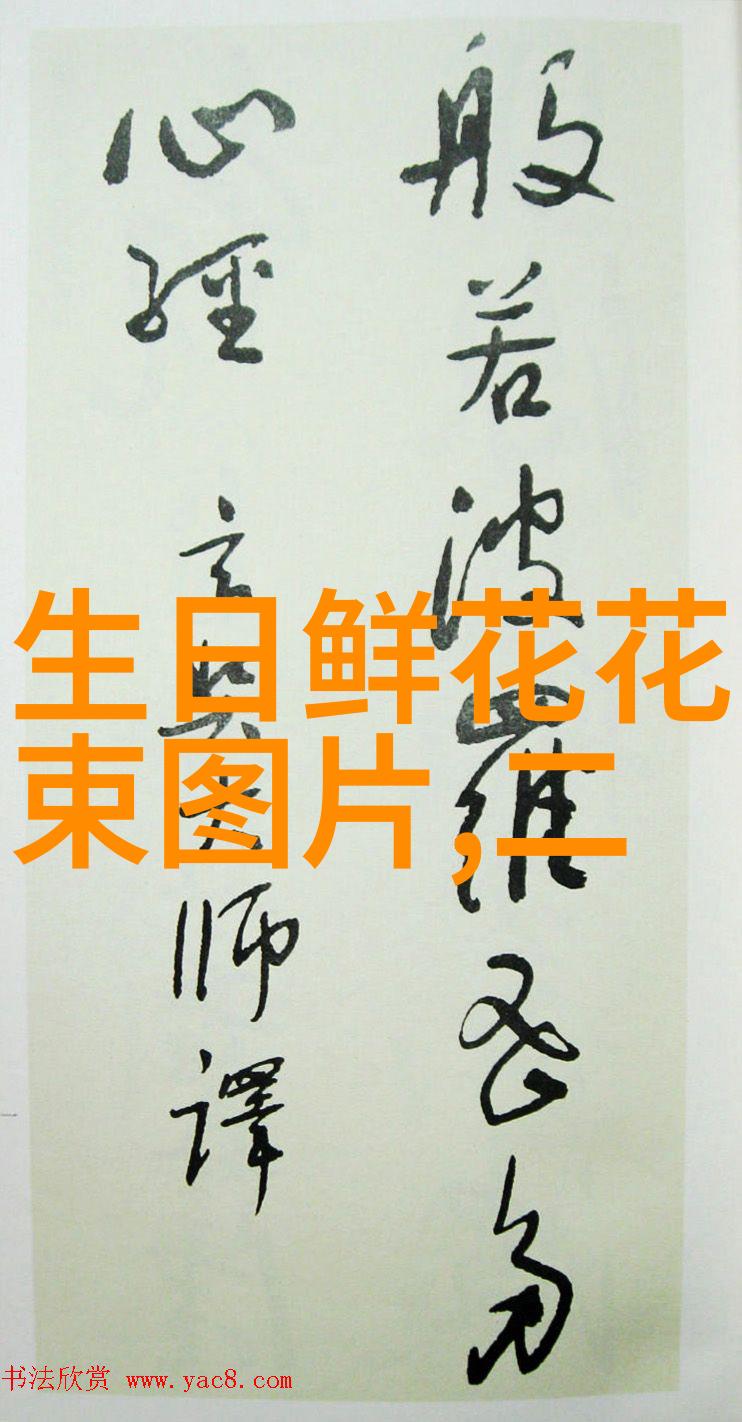 般若波羅密多
心經 玄奘法師譯
生日鲜花花
束图片,二
书法欣赏 www.yac8.com